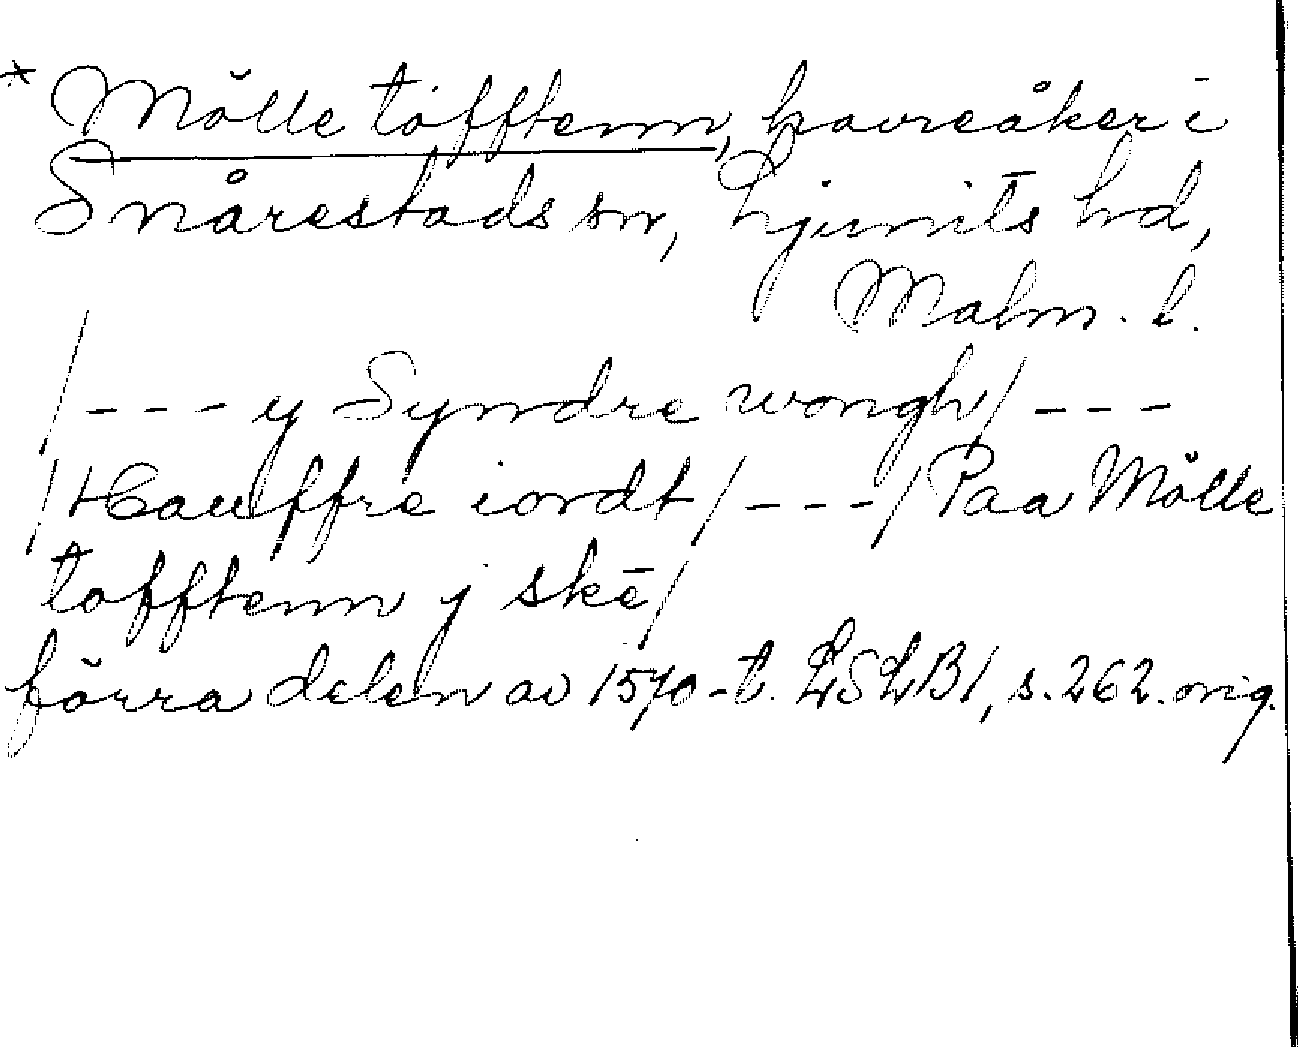 * Mölle tofftenn, havreåker i
Snårestads sn, Ljunits hd,
Malm. l.
/--- y Syndre wongh/ ---
/Hauffre iordt/ ---/ Paa Mölle
tofftenn j skē/
förra delen av 1570-t. LSLB1, s. 262. orig.